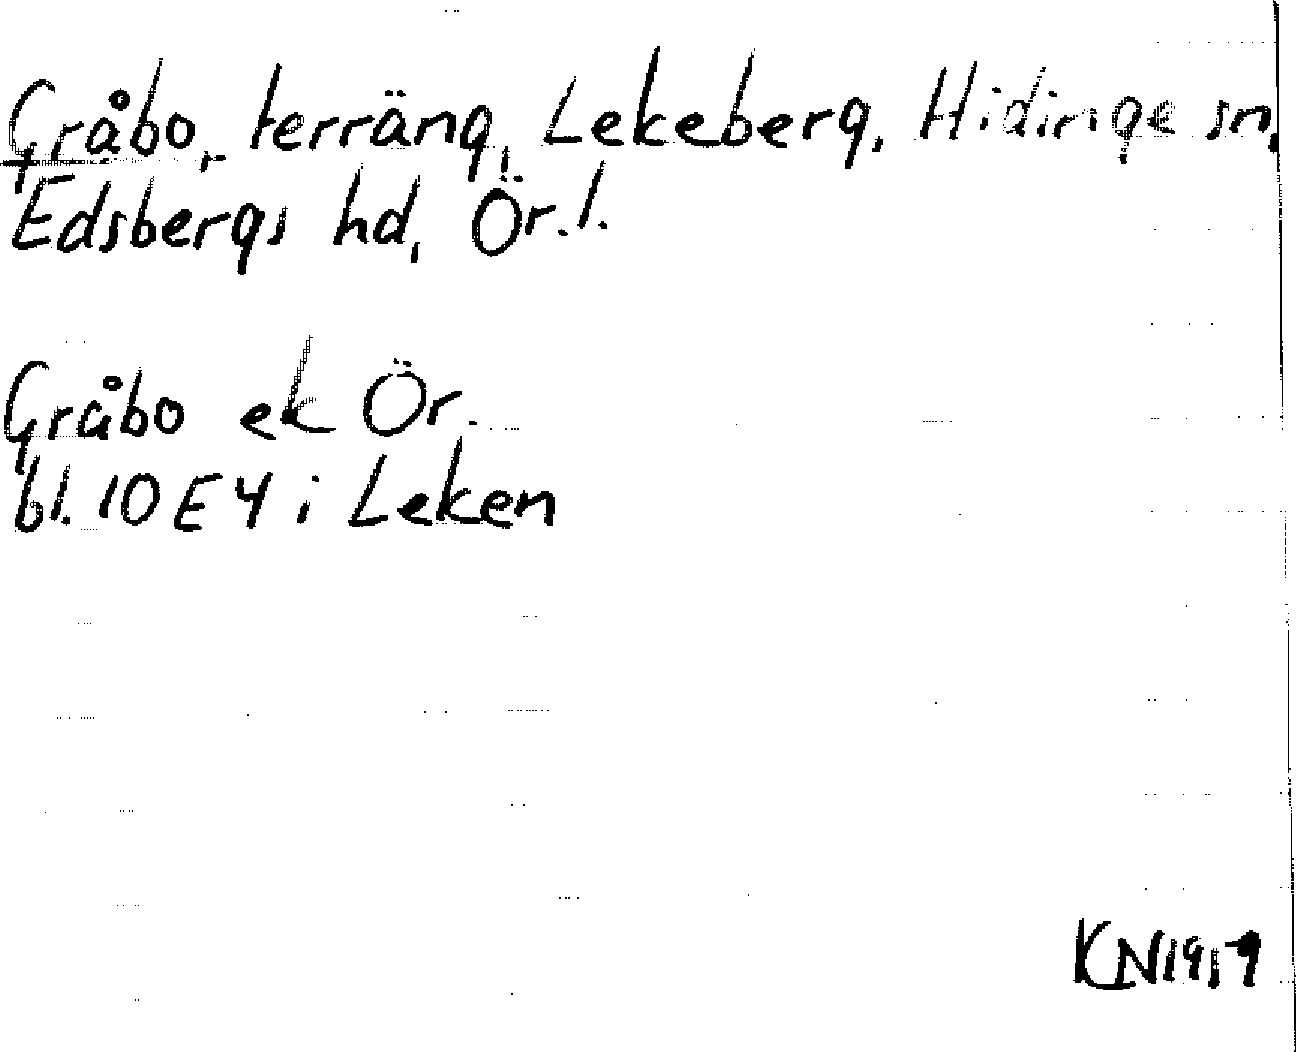 Gråbo, terräng, Lekeberg, Hidinge sn,
Edsbergs hd, Ör.l.
Gråbo ek Ör.
bl. 10 E 4 i Leken
KN 1919